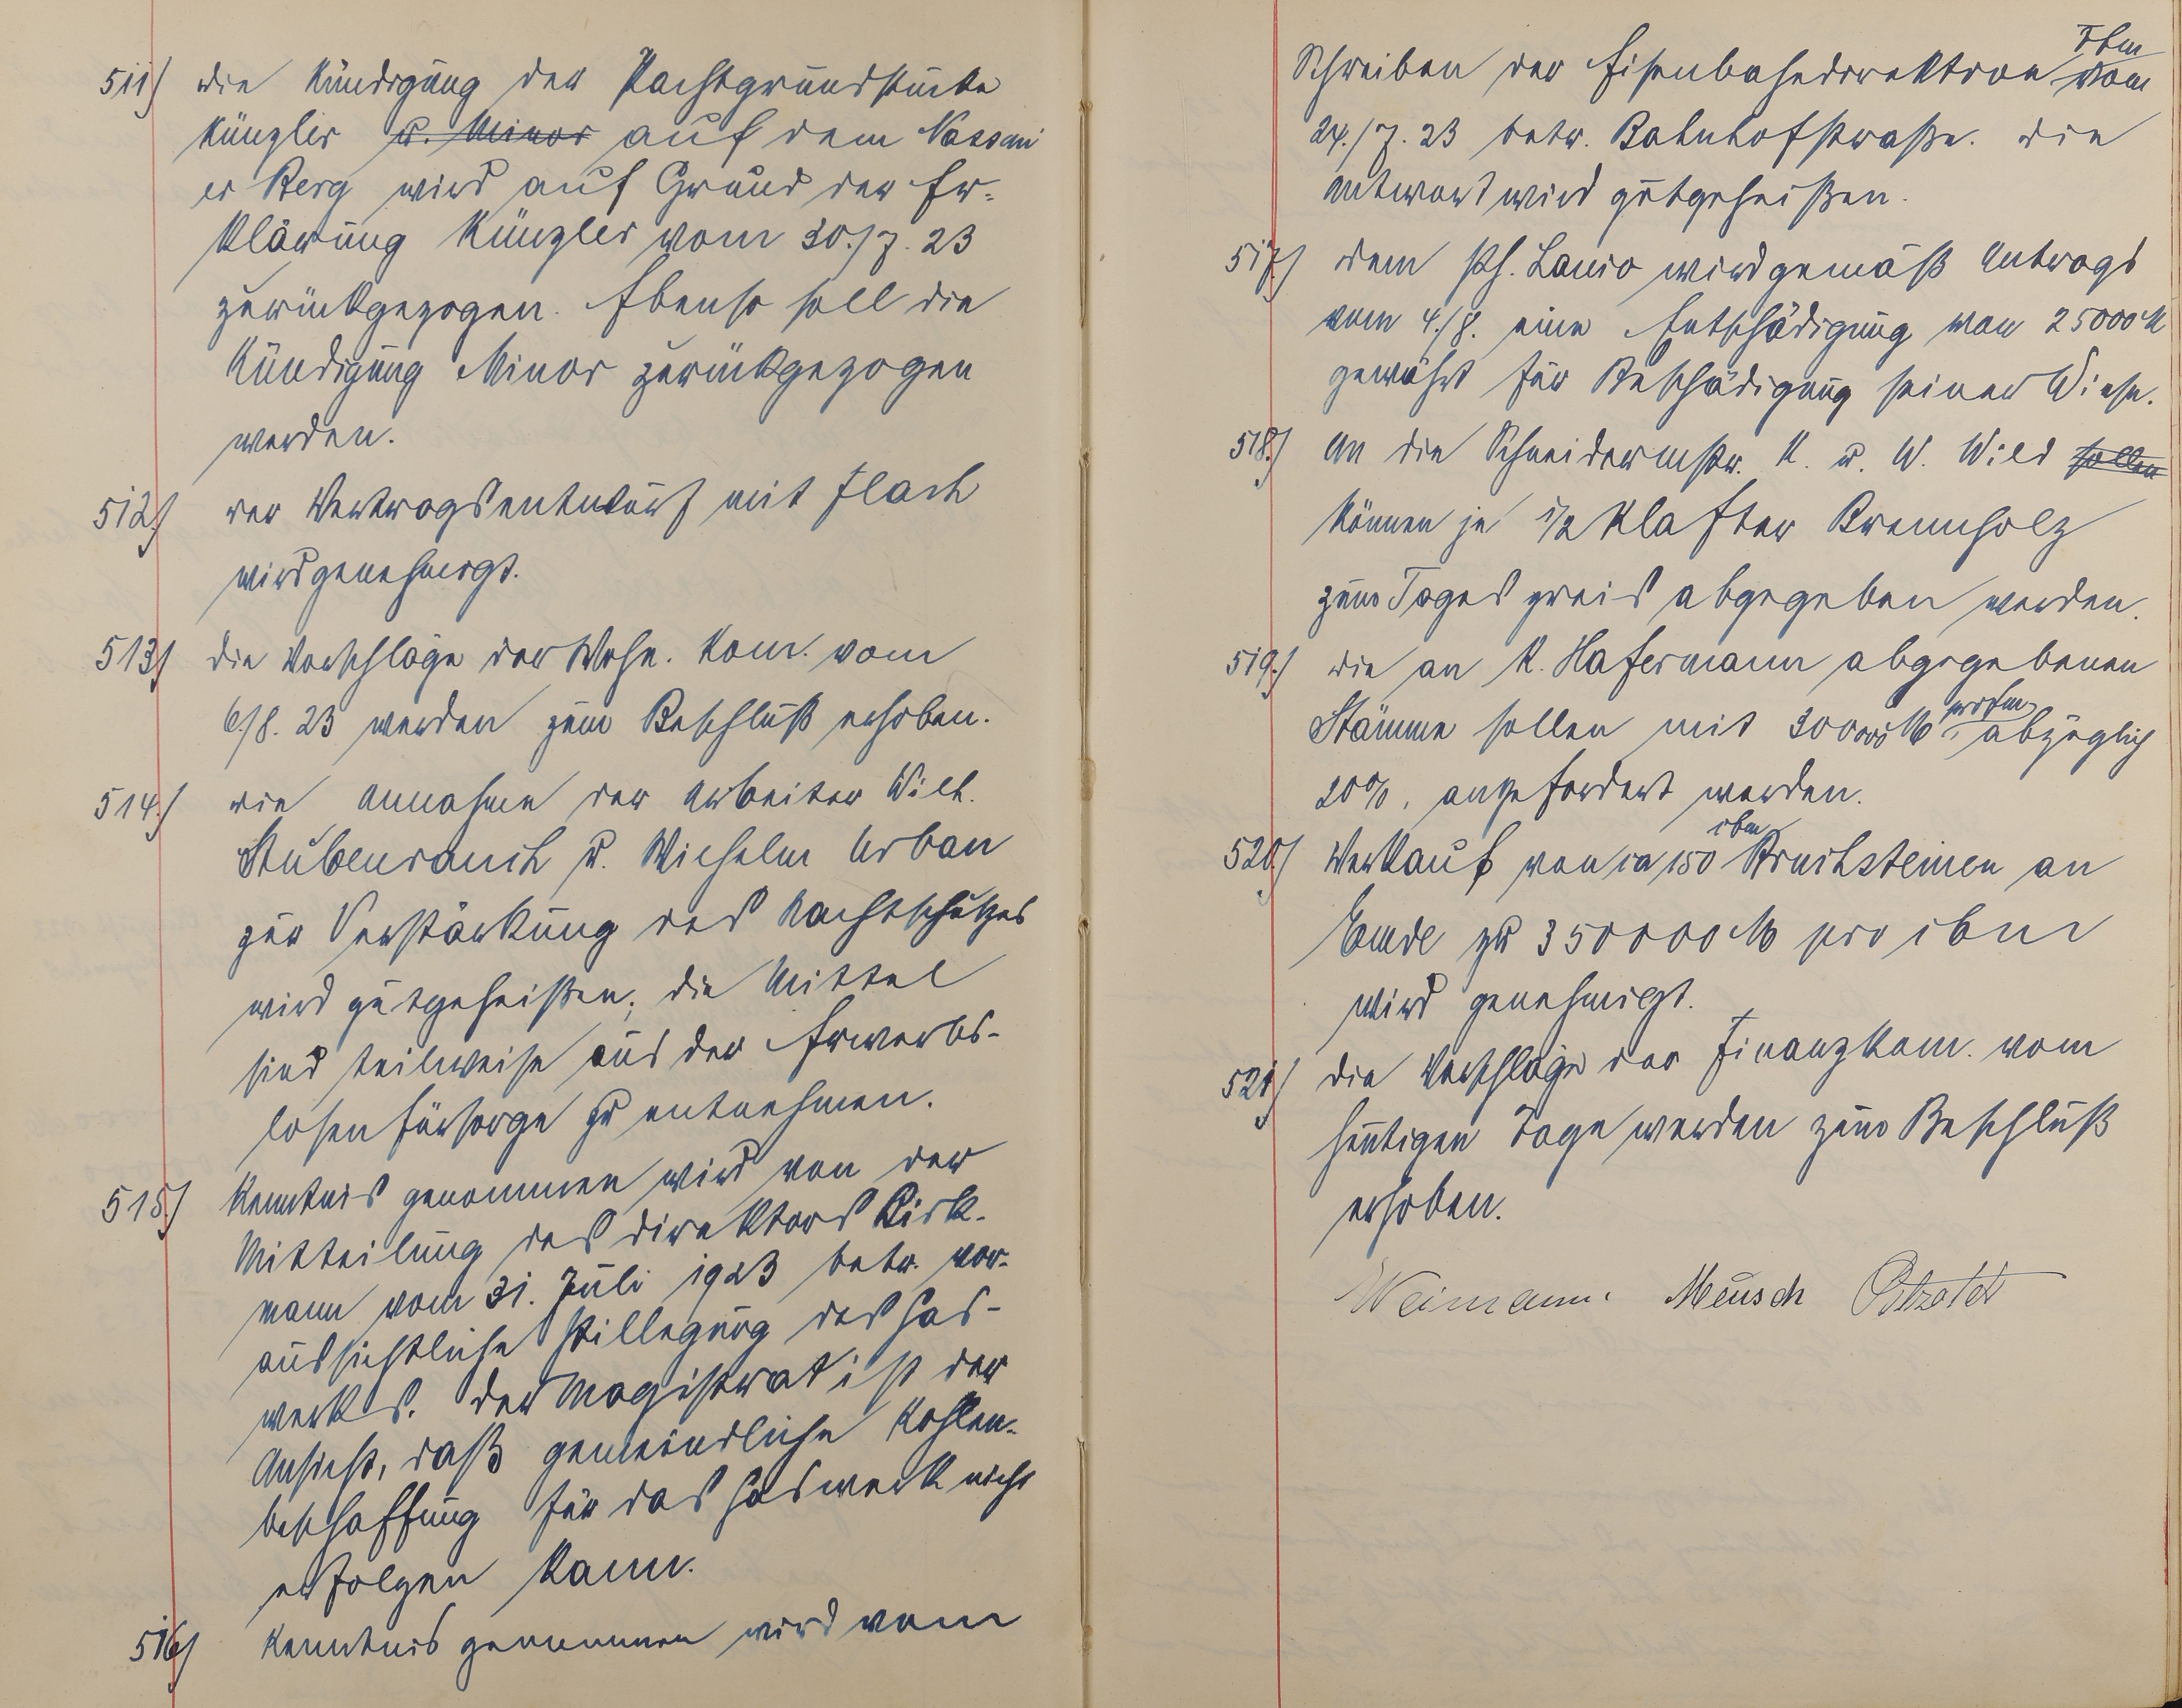 511) die Kündigung der Pachtgrundstücke
Künzler u. Minor auf dem Nassau
er Berg wird auf Grund der Er-
klärung Künzler vom 30./7. 23
zurückgezogen. Ebenso soll die
Kündigung Minor zurückgezogen
werden.
512) der Vertragsentwurf mit Flach
wird genehmigt.
513) die Vorschläge der Wohn. Kom. vom
6./8. 23 werden zum Beschluß erhoben.
514) die Annahme der Arbeiter Wilh.
Stubenrauch u. Wilhelm Urban
zur Verstärkung des Nachtschutzes
wird gutgeheißen; die Mittel
sind teilweise aus der Erwerbs-
losenfürsorge zu entnehmen.
515) Kenntnis genommen wird von der
Mitteilung des Direktors Birk-
mann vom 31. Juli 1923 betr. vor-
aussichtliche Stillegung des Gas-
werks. Der Magistrat ist der
Ansicht, daß gemeindliche Kohlen-
beschaffung für das Gaswerk nicht
erfolgen kann.
516) Kenntnis genommen wird vom
Schreiben der Eisenbahndirektion Ffm vom
24./7. 23 betr. Bahnhofstraße. Die
Antwort wird gutgeheißen.
517) dem Ph. Lanio wird gemäß Antrags
vom 4./8. eine Entschädigung von 25000 M
gewährt für Beschädigung seiner Wiese.
518) An die Schneidermstr. K. u. W. Wild sollen
können je 1/2 Klafter Brennholz
zum Tagespreis abgegeben werden.
519) die an K. Hafermann abgegebenen
Stämme sollen mit 300000 M pro fm, abzüglich
20%, angefordert werden.
520) Verkauf von ca 150 cbm Bruchsteinen an
Emde zu 350000 M pro cbm
wird genehmigt.
521) die Vorschläge der Finanzkom. vom
heutigen Tage werden zum Beschluß
erhoben.
Weimann. Meusch